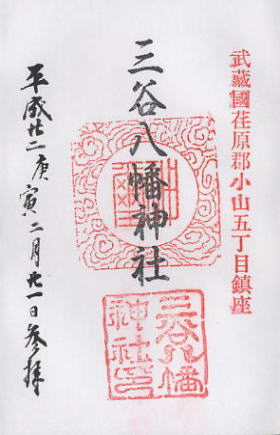 武藏國荏原郡小山五丁目鎮座
三谷八幡神社
三谷八幡
神社印
平成廿二庚寅二月廿一日参拝